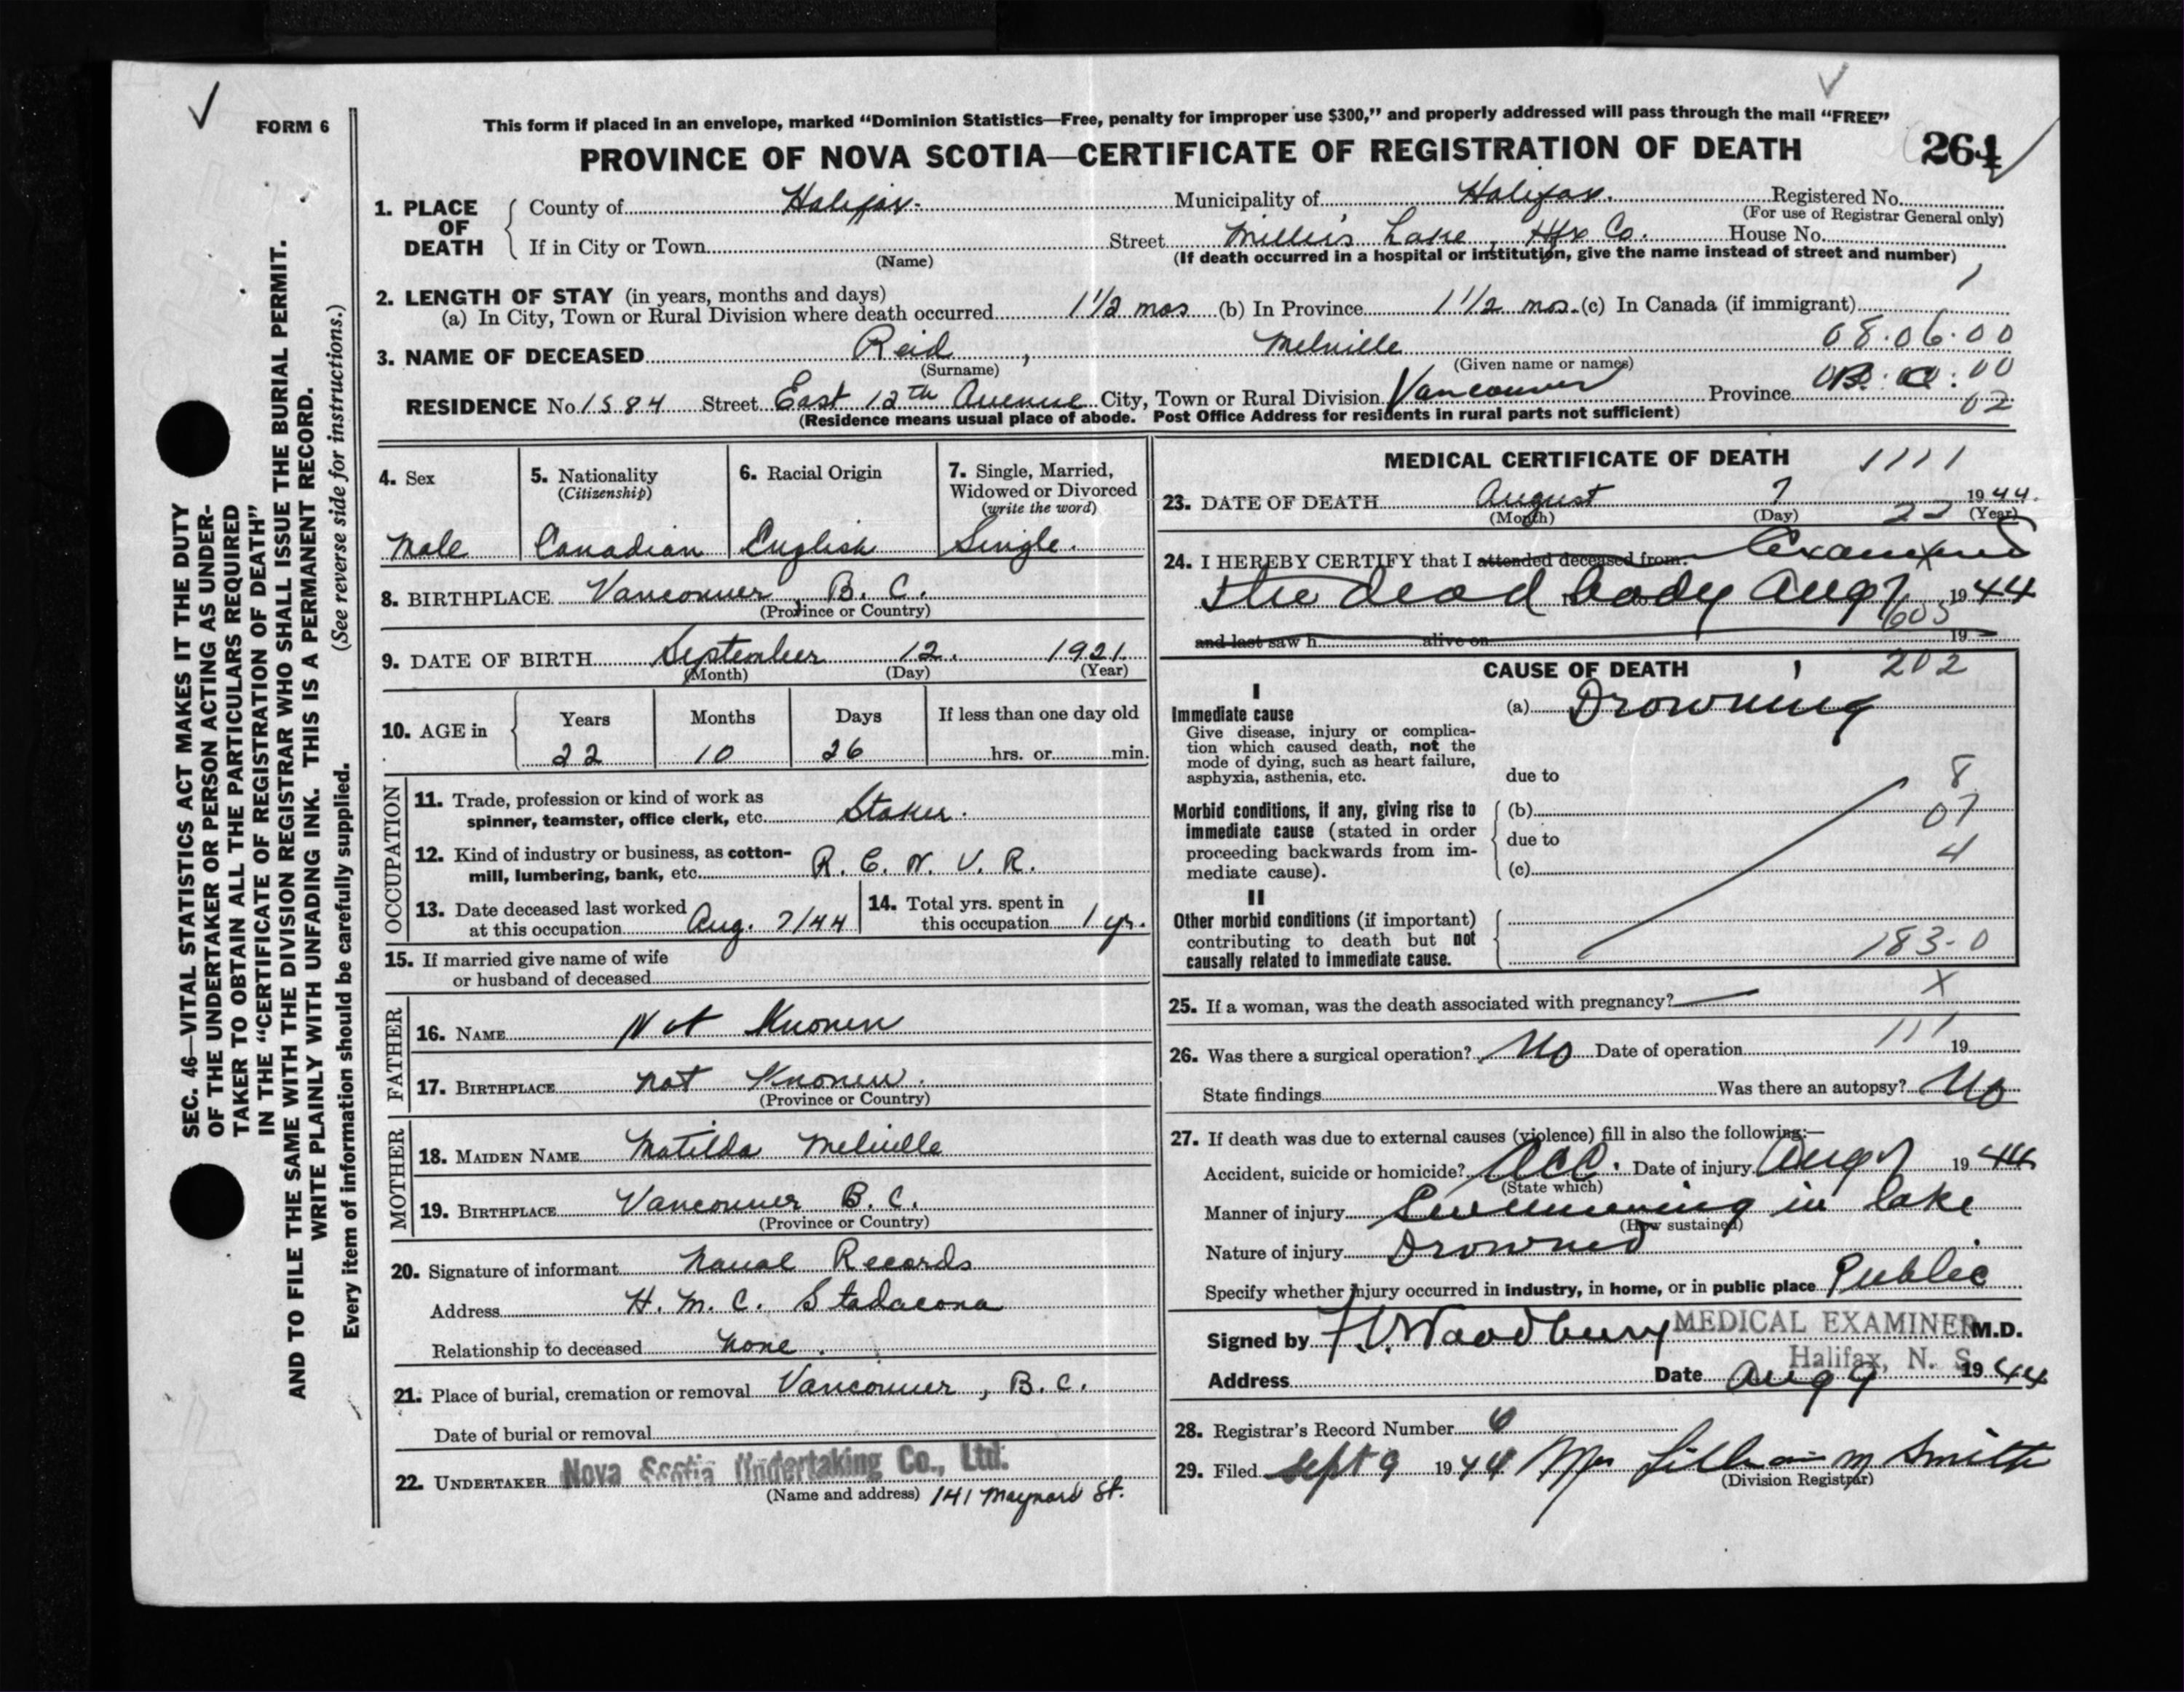 FORM 6
This form if placed in an envelope, marked "Dominion Statistics—Free, penalty for improper use $300," and properly addressed will pass through the mail "FREE"
PROVINCE OF NOVA SCOTIA—CERTIFICATE OF REGISTRATION OF DEATH 264
SEC. 46—VITAL STATISTICS ACT MAKES IT THE DUTY
OF THE UNDERTAKER OR PERSON ACTING AS UNDER-
TAKER TO OBTAIN ALL THE PARTICULARS REQUIRED
IN THE "CERTIFICATE OF REGISTRATION OF DEATH"
AND TO FILE THE SAME WITH THE DIVISION REGISTRAR WHO SHALL ISSUE THE BURIAL PERMIT.
WRITE PLAINLY WITH UNFADING INK. THIS IS A PERMANENT RECORD.
Every item of information should be carefully supplied. (See reverse side for instructions.)
1. PLACE OF DEATH
County of Halifax. Municipality of Halifax. Registered No.
(For use of Registrar General only)
If in City or Town Street Lake, Hfx Co. House No.
(Name) (If death occurred in a hospital or institution, give the name instead of street and number)
2. LENGTH OF STAY (in years, months and days)
(a) In City, Town or Rural Division where death occurred 1 1/2 mos (b) In Province 1 1/2 mos. (c) In Canada (if immigrant)
08.06.00
3. NAME OF DECEASED Reid, Melville
(Surname) (Given name or names)
RESIDENCE No. 1584 Street East 12th Avenue City, Town or Rural Division Vancouver Province B.C.
02
(Residence means usual place of abode. Post Office Address for residents in rural parts not sufficient)
4. Sex
Male
5. Nationality
(Citizenship)
Canadian
6. Racial Origin
English
7. Single, Married,
Widowed or Divorced
(write the word)
Single.
8. BIRTHPLACE Vancouver, B.C.
(Province or Country)
9. DATE OF BIRTH September 12. 1921.
(Month) (Day) (Year)
10. AGE in Years Months Days If less than one day old
22 10 26 hrs. or min.
OCCUPATION
11. Trade, profession or kind of work as
spinner, teamster, office clerk, etc. Stoker.
12. Kind of industry or business, as cotton-
mill, lumbering, bank, etc. R. C. N. V. R.
13. Date deceased last worked
at this occupation Aug. 7/44
14. Total yrs. spent in
this occupation 1 yr.
15. If married give name of wife
or husband of deceased
FATHER
16. NAME Not Known
17. BIRTHPLACE Not Known.
(Province or Country)
MOTHER
18. MAIDEN NAME Matilda Melville
19. BIRTHPLACE Vancouver B.C.
(Province or Country)
20. Signature of informant Naval Records
Address H. M. C. Stadacona
Relationship to deceased None.
21. Place of burial, cremation or removal Vancouver, B.C.
Date of burial or removal
22. UNDERTAKER Nova Scotia Undertaking Co., Ltd.
(Name and address) 141 Maynard St.
MEDICAL CERTIFICATE OF DEATH 1111
23. DATE OF DEATH August 7 1944.
(Month) (Day) (Year)
22
24. I HEREBY CERTIFY that I attended deceased from Examined
the dead body Aug 7 1944
605
and last saw h alive on 19
CAUSE OF DEATH 202
I
Immediate cause
Give disease, injury or complica-
tion which caused death, not the
mode of dying, such as heart failure,
asphyxia, asthenia, etc.
(a) Drowning
due to 8
Morbid conditions, if any, giving rise to
immediate cause (stated in order
proceeding backwards from im-
mediate cause).
(b) 07
due to
(c) 4
II
Other morbid conditions (if important)
contributing to death but not
causally related to immediate cause.
183-0
25. If a woman, was the death associated with pregnancy? — X
111
26. Was there a surgical operation? No Date of operation 19
State findings Was there an autopsy? No
27. If death was due to external causes (violence) fill in also the following:—
Accident, suicide or homicide? Acc. Date of injury Aug 7 1944
(State which)
Manner of injury Swimming in lake
(How sustained)
Nature of injury Drowned
Specify whether injury occurred in industry, in home, or in public place Public
Signed by Woodbury MEDICAL EXAMINER M.D.
Halifax, N. S.
Address Date Aug 9 1944
28. Registrar's Record Number 6
29. Filed Sept 9 1944 Mrs Lillian M Smith
(Division Registrar)